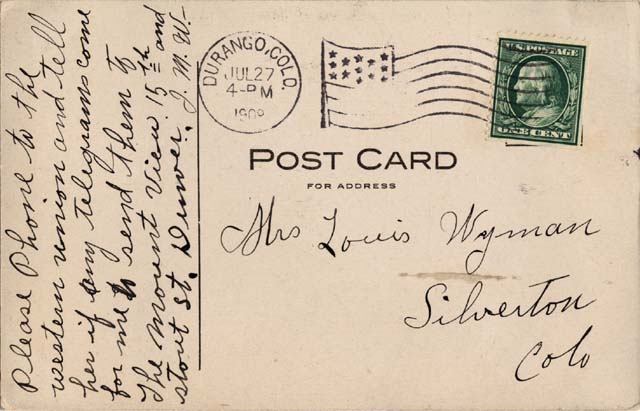 Please Phone to the
western union and tell
her if any telegrams come
for me to send them to
The Mount View 15th and
stout st. Denver. J. M. W.
DURANGO, COLO.
JUL 27
4-PM
1909
U.S. POSTAGE
ONE CENT
POST CARD
FOR ADDRESS
Mrs Louis Wyman
Silverton
Colo